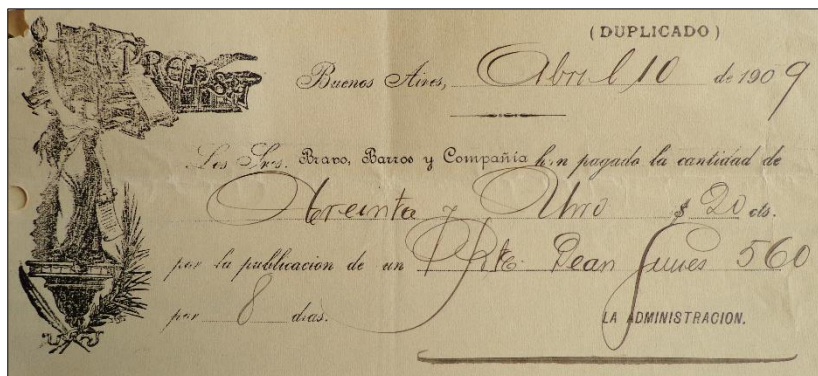 (DUPLICADO)
LA PRENSA
Buenos Aires, Abril 10 de 1909
Los Sres. Bravo, Barros y Compañia han pagado la cantidad de
treinta y Uno $ 20 cts.
por la publicacion de un Rte. Dean Funes 560
por 8 dias.
LA ADMINISTRACION.